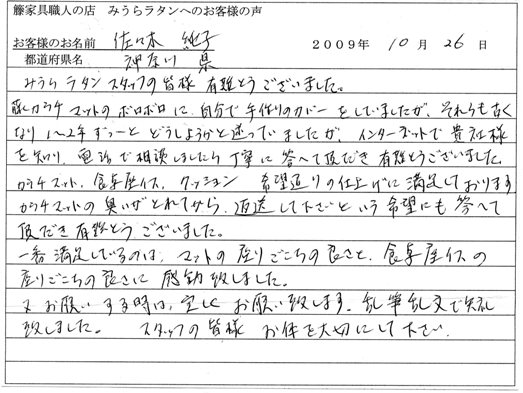 籐家具職人の店 みうらラタンへのお客様の声
お客様のお名前 佐々木 純子 2009年 10月 26日
都道府県名 神奈川県
みうらラタンスタッフの皆様有難とうございました。
籐カウチマットのボロボロに、自分で手作りのカバーをしていましたが、それらも古く
なり1〜2年ずーっとどうしようかと迷っていましたが、インターネットで貴社様
を知り、電話で相談しましたら丁寧に答へて頂だき有難とうございました。
カウチマット、食卓座イス、クッション 希望通りの仕上げに満足しております
カウチマットの臭いがとれてから、返送して下さいという希望にも答へて
頂だき有難とうございました。
一番満足しているのは、マットの座りごこちの良さと、食卓座イスの
座りごこちの良さに感動致しました。
又お願いする時は、宜しくお願い致します。乱筆乱文で失礼
致しました。 スタッフの皆様 お体を大切にして下さい。